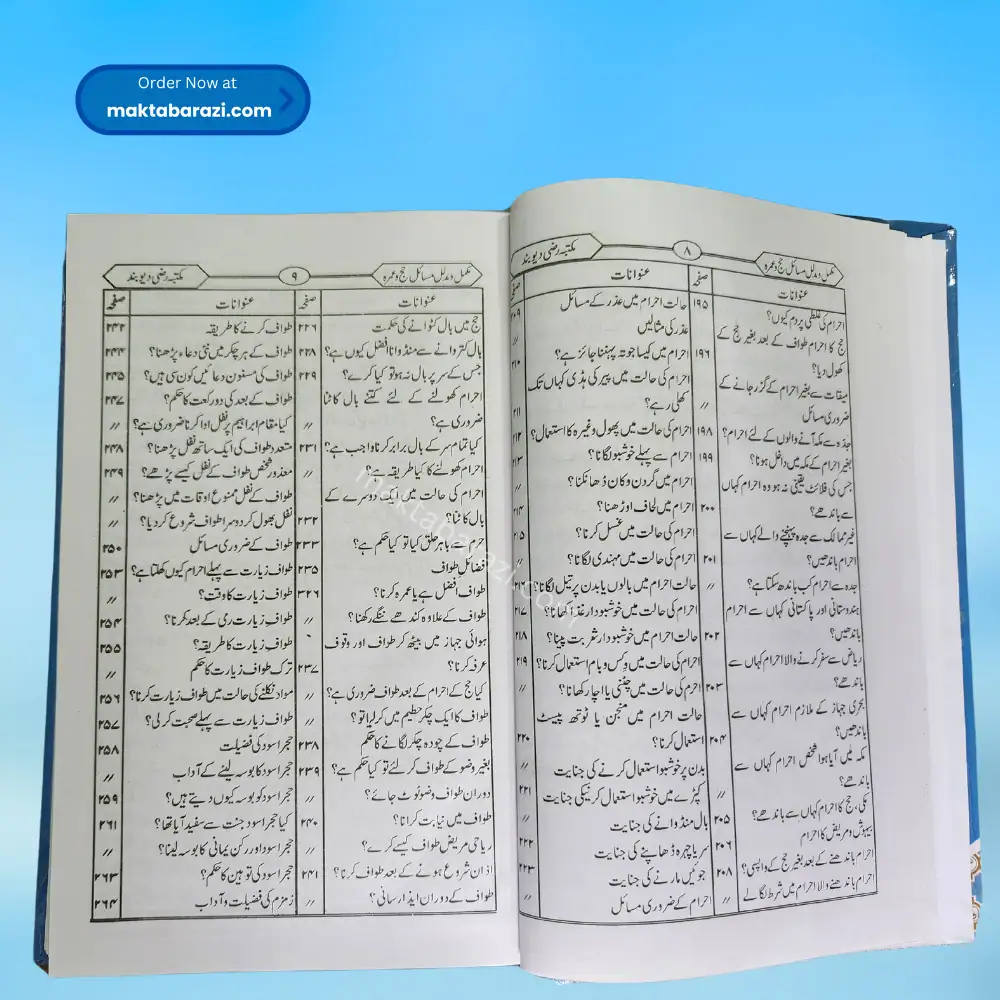 Order Now at
maktabarazi.com
مکمل و مدلل مسائل حج و عمرہ ۸ مکتبہ رضی دیوبند
عنوانات صفحہ
احرام کی غلطی پر دم کیوں؟ ۱۹۵
حج کا احرام طواف کے بعد بغیر حج کے
کھول دیا؟ ۱۹۶
میقات سے بغیر احرام کے گزر جانے کے
ضروری مسائل 〃
جدہ سے مکہ آنے والوں کے لئے احرام؟ ۱۹۸
بغیر احرام کے مکہ میں داخل ہونا؟ ۱۹۹
جس کی فلائٹ یقینی نہ ہو وہ احرام کہاں
سے باندھے؟ ۲۰۰
غیر ممالک سے جدہ پہنچنے والے کہاں سے
احرام باندھیں؟ ۲۰۱
جدہ سے احرام کب باندھ سکتا ہے؟ 〃
ہندوستانی اور پاکستانی کہاں سے احرام
باندھیں؟ ۲۰۲
ریاض سے سفر کرنے والا احرام کہاں سے
باندھے؟ ۲۰۳
بحری جہاز کے ملازم احرام کہاں سے
باندھیں؟ ۲۰۴
مکہ میں آیا ہوا شخص احرام کہاں سے
باندھے؟ 〃
مکی، حج کا احرام کہاں سے باندھے؟ ۲۰۵
بیہوش و مریض کا احرام ۲۰۶
احرام باندھنے کے بعد بغیر حج کے واپسی؟ ۲۰۸
احرام باندھنے والا احرام میں شرط لگا لے 〃
عنوانات
حالت احرام میں عذر کے مسائل ۲۰۹
عذر کی مثالیں 〃
احرام میں کیسا جوتہ پہننا جائز ہے؟ ۲۱۰
احرام کی حالت میں پیر کی ہڈی کہاں تک
کھلی رہے؟ ۲۱۱
احرام کی حالت میں پھول وغیرہ کا استعمال؟ ۲۱۲
احرام سے پہلے خوشبو لگانا؟ ۲۱۳
احرام میں گردن و کان ڈھانکنا؟ 〃
احرام میں لحاف اوڑھنا؟ ۲۱۴
احرام کی حالت میں غسل کرنا؟ ۲۱۵
احرام کی حالت میں مہندی لگانا؟ 〃
حالت احرام میں بالوں یا بدن پر تیل لگانا؟ ۲۱۶
احرام کی حالت میں خوشبودار غذا کھانا؟ ۲۱۷
حالت احرام میں خوشبودار شربت پینا؟ ۲۱۸
احرام کی حالت میں وکس و بام استعمال کرنا؟ ۲۱۹
احرم کی حالت میں چٹنی یا اچار کھانا؟ 〃
حالت احرام میں منجن یا ٹوتھ پیسٹ
استعمال کرنا؟ ۲۲۰
بدن پر خوشبو استعمال کرنے کی جنایت 〃
کپڑے میں خوشبو استعمال کرنیکی جنایت ۲۲۱
بال منڈوانے کی جنایت 〃
سر یا چہرہ ڈھاپنے کی جنایت ۲۲۲
جوئیں مارنے کی جنایت ۲۲۳
احرام کے ضروری مسائل 〃
مکمل و مدلل مسائل حج و عمرہ ۹ مکتبہ رضی دیوبند
عنوانات صفحہ
حج میں بال کٹوانے کی حکمت ۲۲۶
بال کتروانے سے منڈوانا افضل کیوں ہے؟ ۲۲۸
جس کے سر پر بال نہ ہو تو کیا کرے؟ ۲۲۹
احرام کھولنے کے لئے کتنے بال کاٹنا
ضروری ہے؟ 〃
کیا تمام سر کے بال برابر کرنا واجب ہے؟ ۲۳۱
احرام کھولنے کا کیا طریقہ ہے؟ 〃
احرام کی حالت میں ایک دوسرے کے
بال کاٹنا؟ ۲۳۲
حرم سے باہر حلق کیا تو کیا حکم ہے؟ ۲۳۳
فضائل طواف ۲۳۵
طواف افضل ہے یا عمرہ کرنا؟ ۳۲۶
طواف کے علاوہ کندھے ننگے رکھنا؟ 〃
ہوائی جہاز میں بیٹھ کر طواف اور وقوف
عرفہ کرنا؟ ۲۳۷
کیا حج کے احرام کے بعد طواف ضروری ہے؟ 〃
طواف کا ایک چکر حطیم میں کر لیا تو؟ 〃
طواف کے چودہ چکر لگانے کا حکم ۲۳۸
بغیر وضو کے طواف کر لئے تو کیا حکم ہے؟ ۲۳۹
دوران طواف وضو ٹوٹ جائے؟ 〃
طواف میں نیابت کرانا؟ ۲۴۰
ریاحی مریض طواف کیسے کرے؟ 〃
اذان شروع ہونے کے بعد طواف کرنا؟ ۲۴۱
طواف کے دوران ایذا رسانی؟ 〃
عنوانات صفحہ
طواف کرنے کا طریقہ ۲۴۲
طواف کے ہر چکر میں نئی دعاء پڑھنا؟ ۲۴۴
طواف کی مسنون دعائیں کون سی ہیں؟ ۲۴۵
طواف کے بعد کی دو رکعت کا حکم؟ ۲۴۷
کیا مقام ابراہیم پر نفل ادا کرنا ضروری ہے؟ 〃
متعدد طواف کی ایک ساتھ نفل پڑھنا؟ ۲۴۸
معذور شخص طواف کے نفل کیسے پڑھے؟ ۲۴۹
طواف کے نفل ممنوع اوقات میں پڑھنا؟ 〃
نفل بھول کر دوسرا طواف شروع کر دیا؟ 〃
طواف کے ضروری مسائل ۲۵۰
طواف زیارت سے پہلے احرام کیوں کھلتا ہے؟ ۲۵۳
طواف زیارت کا وقت؟ 〃
طواف زیارت رمی کے بعد کرنا؟ ۲۵۴
طواف زیارت کا طریقہ؟ ۲۵۵
ترک طواف زیارت کا حکم 〃
مواد نکلنے کی حالت میں طواف زیارت کرنا؟ ۲۵۶
طواف زیارت سے پہلے صحبت کر لی؟ ۲۵۷
حجر اسود کی فضیلت ۲۵۸
حجر اسود کا بوسہ لینے کے آداب 〃
حجر اسود کو بوسہ کیوں دیتے ہیں؟ ۲۵۹
کیا حجر اسود جنت سے سفید آیا تھا؟ ۲۶۱
حجر اسود اور رکن یمانی کا بوسہ لینا؟ 〃
حجر اسود کی توہین کا حکم؟ ۲۶۳
زمزم کی فضیلت و آداب ۲۶۴
maktabarazi.com